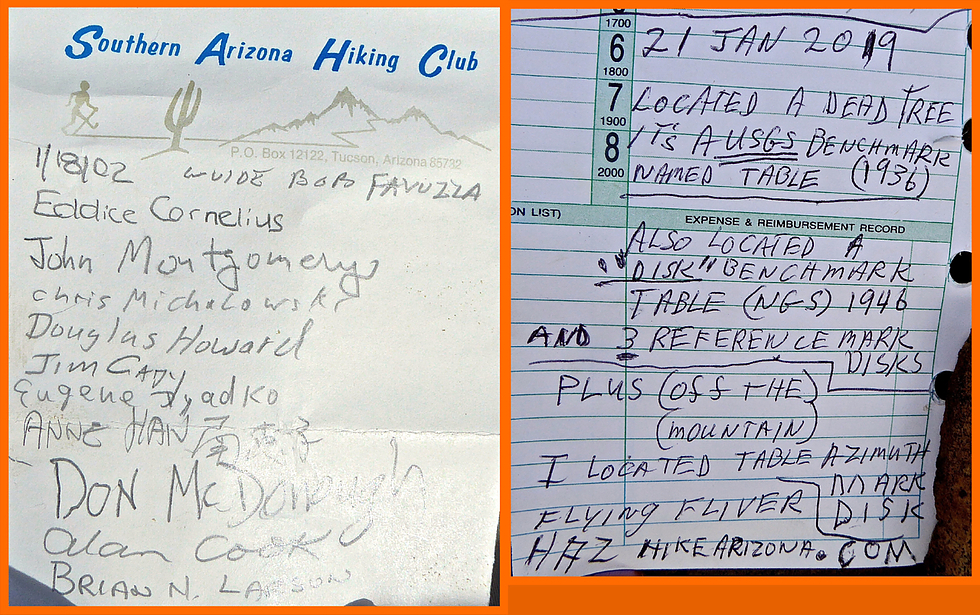 Southern Arizona Hiking Club
P.O. Box 12122, Tucson, Arizona 85732
1/18/02 GUIDE BOB FAVUZZA
Eddice Cornelius
John Montgomery
Chris Michalowski
Douglas Howard
Jim Gady
Eugene
ANNE HAN
DON McDonough
Alan Cook
BRIAN N. LARSON
1700
6 21 JAN 2019
1800
7 LOCATED A DEAD TREE
1900
8 IT'S A USGS BENCHMARK
2000 NAMED TABLE (1936)
ON LIST) EXPENSE & REIMBURSEMENT RECORD
ALSO LOCATED A
"DISK" BENCHMARK
TABLE (NGS) 1946
AND 3 REFERENCE MARK
DISKS
PLUS (OFF THE
(MOUNTAIN)
I LOCATED TABLE AZIMUTH
MARK
DISK
FLYING FLIVER
HAZ HIKEARIZONA.COM